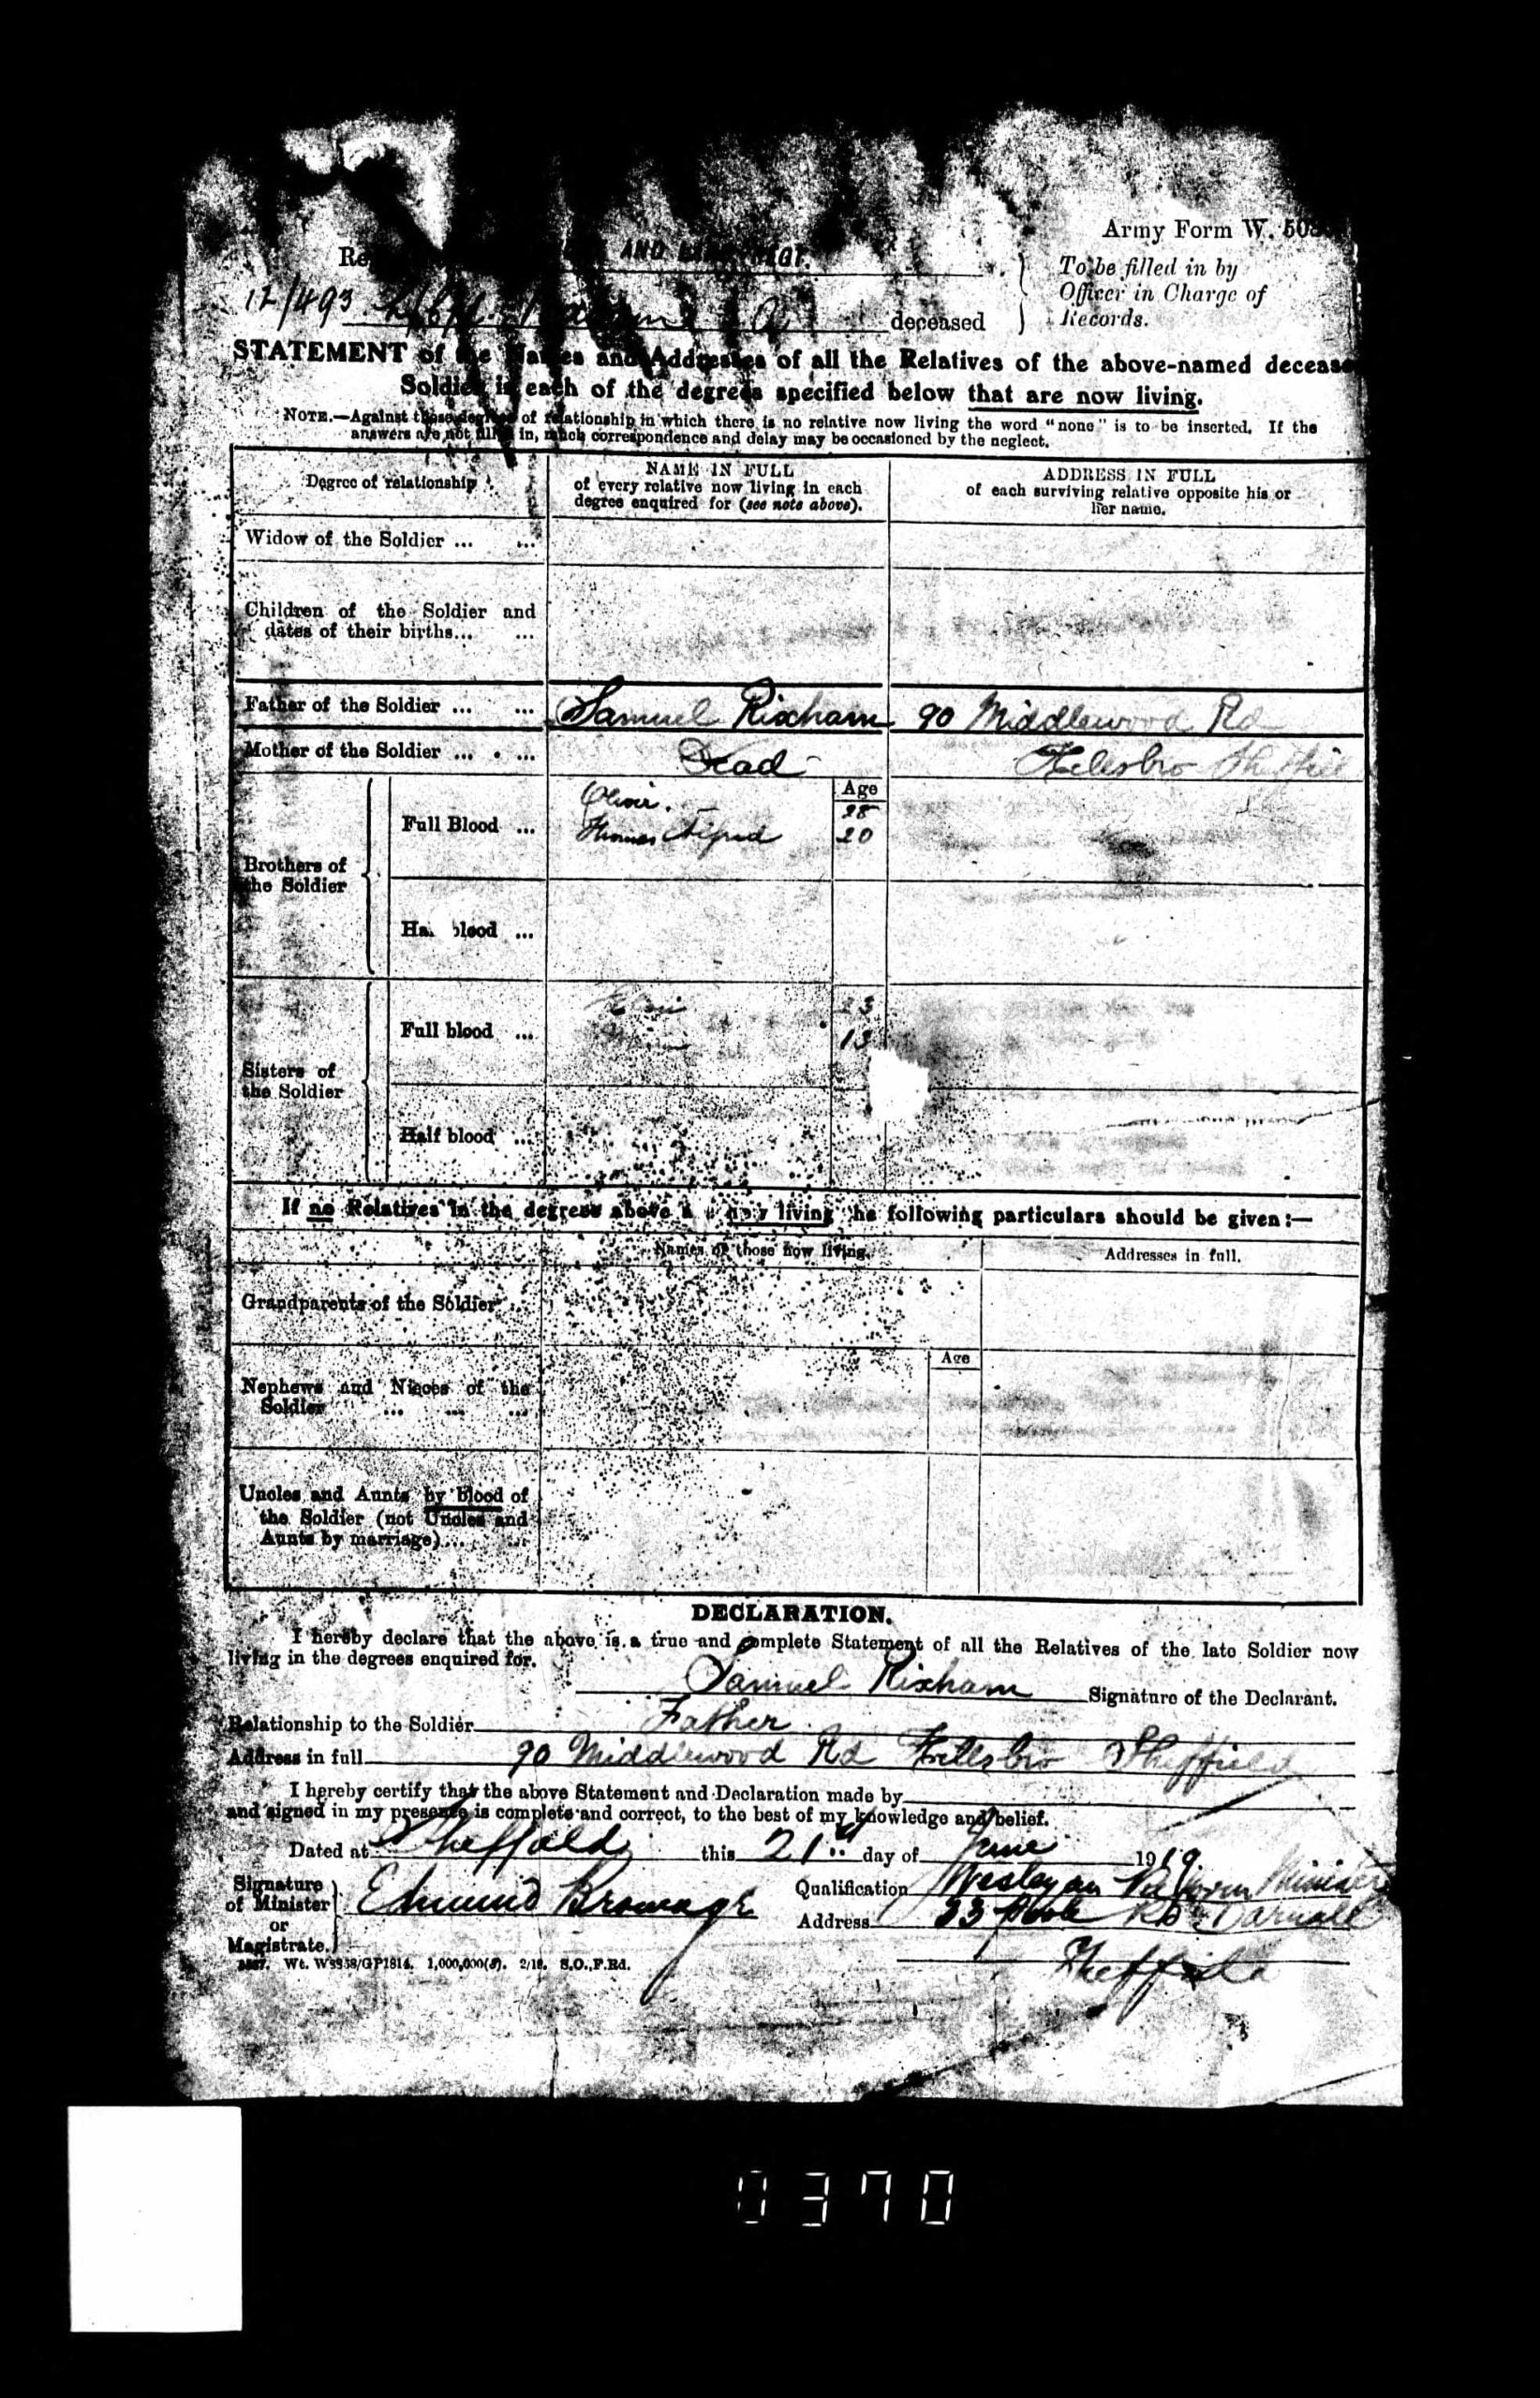 Army Form W. 50
AND
To be filled in by
Officer in Charge of
Records.
12/493 L/Cpl. A deceased
STATEMENT of the Names and Addresses of all the Relatives of the above-named deceas
Soldier in each of the degrees specified below that are now living.
NOTE.—Against those degrees of relationship in which there is no relative now living the word "none" is to be inserted. If the
answers are not filled in, much correspondence and delay may be occasioned by the neglect.
Degree of relationship
NAME IN FULL
of every relative now living in each
degree enquired for (see note above).
ADDRESS IN FULL
of each surviving relative opposite his or
her name.
Widow of the Soldier ... ...
Children of the Soldier and
dates of their births... ...
Father of the Soldier ... ... Samuel Rixham 90 Middlewood Rd
Mother of the Soldier ... ... Dead Hillsbro Sheffield
Age
Brothers of
the Soldier
Full Blood ...
Oliver. 28
Thomas Alfred 20
Half blood ...
Sisters of
the Soldier
Full blood ...
23
13
Half blood ...
If no Relatives in the degrees above are now living the following particulars should be given:—
Names of those now living. Addresses in full.
Grandparents of the Soldier
Age
Nephews and Nieces of the
Soldier ... ... ...
Uncles and Aunts by blood of
the Soldier (not Uncles and
Aunts by marriage)...
DECLARATION.
I hereby declare that the above is a true and complete Statement of all the Relatives of the late Soldier now
living in the degrees enquired for.
Samuel Rixham Signature of the Declarant.
Relationship to the Soldier Father
Address in full 90 Middlewood Rd Hillsbro Sheffield
I hereby certify that the above Statement and Declaration made by
and signed in my presence is complete and correct, to the best of my knowledge and belief.
Dated at Sheffield this 21st day of June 1919
Signature
of Minister
or
Magistrate.
Edmund Bromage
Qualification Wesleyan Reform Minister
Address 23 Poole Rd Darnall
Sheffield
Wt. 1,000,000 2/19. S.O.,F.Rd.
0370